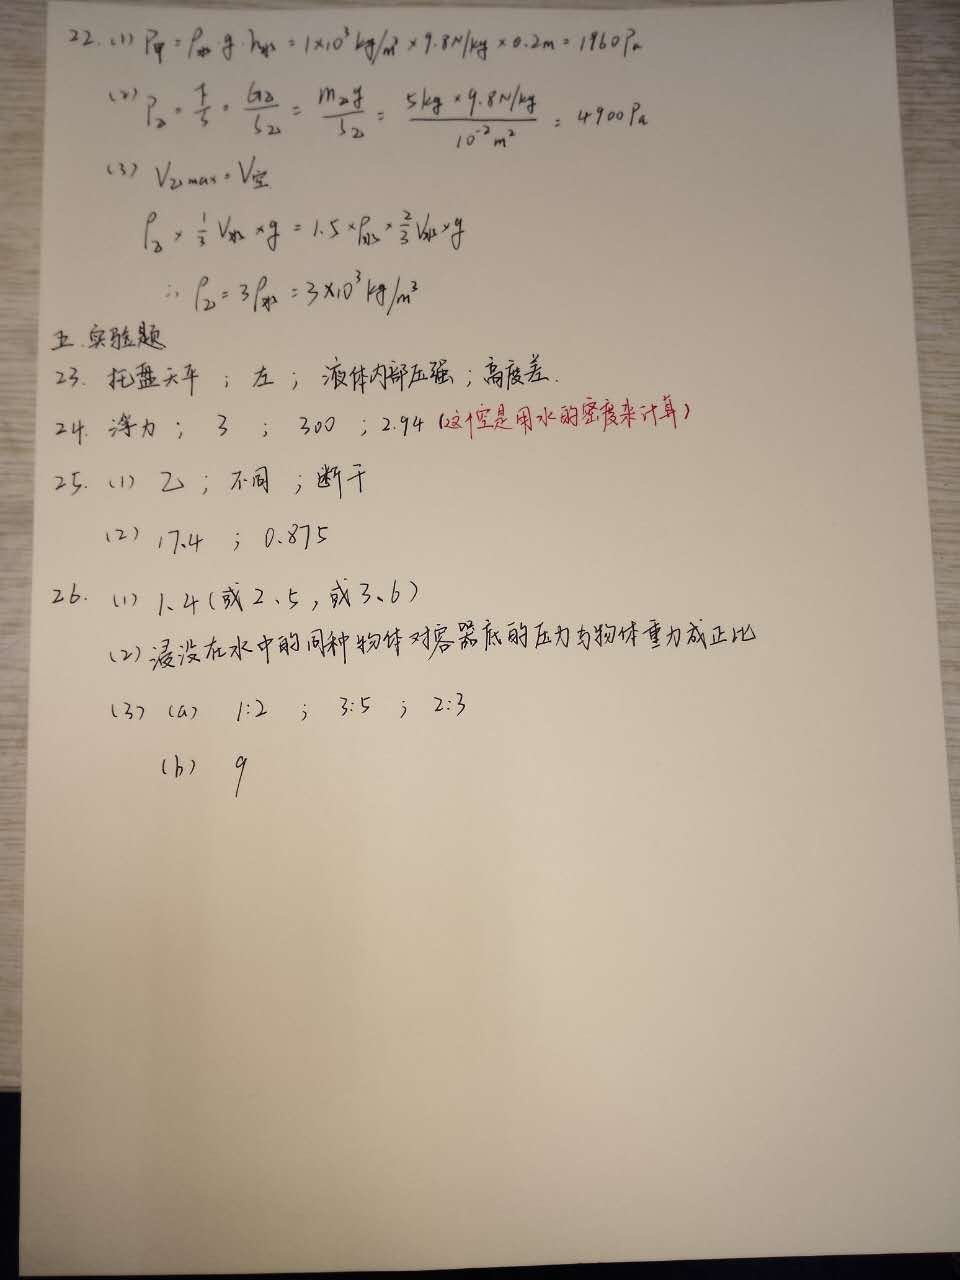 22. (1) P甲 = ρ水·g·h水 = 1×10³kg/m³ × 9.8N/kg × 0.2m = 1960Pa
(2) P乙 = F/S = G乙/S乙 = m乙g/S乙 = 5kg×9.8N/kg / 10⁻²m² = 4900Pa
(3) V乙max = V空
ρ乙 × 1/3 V水 × g = 1.5 × ρ水 × 2/3 V水 × g
∴ ρ乙 = 3ρ水 = 3×10³kg/m³
五.实验题
23. 托盘天平 ; 左 ; 液体内部压强 ; 高度差.
24. 浮力 ; 3 ; 300 ; 2.94 (这个空是用水的密度来计算)
25. (1) 乙 ; 不同 ; 断开
(2) 17.4 ; 0.875
26. (1) 1、4 (或2、5, 或3、6)
(2) 浸没在水中的同种物体对容器底的压力与物体重力成正比
(3) (a) 1:2 ; 3:5 ; 2:3
(b) 9